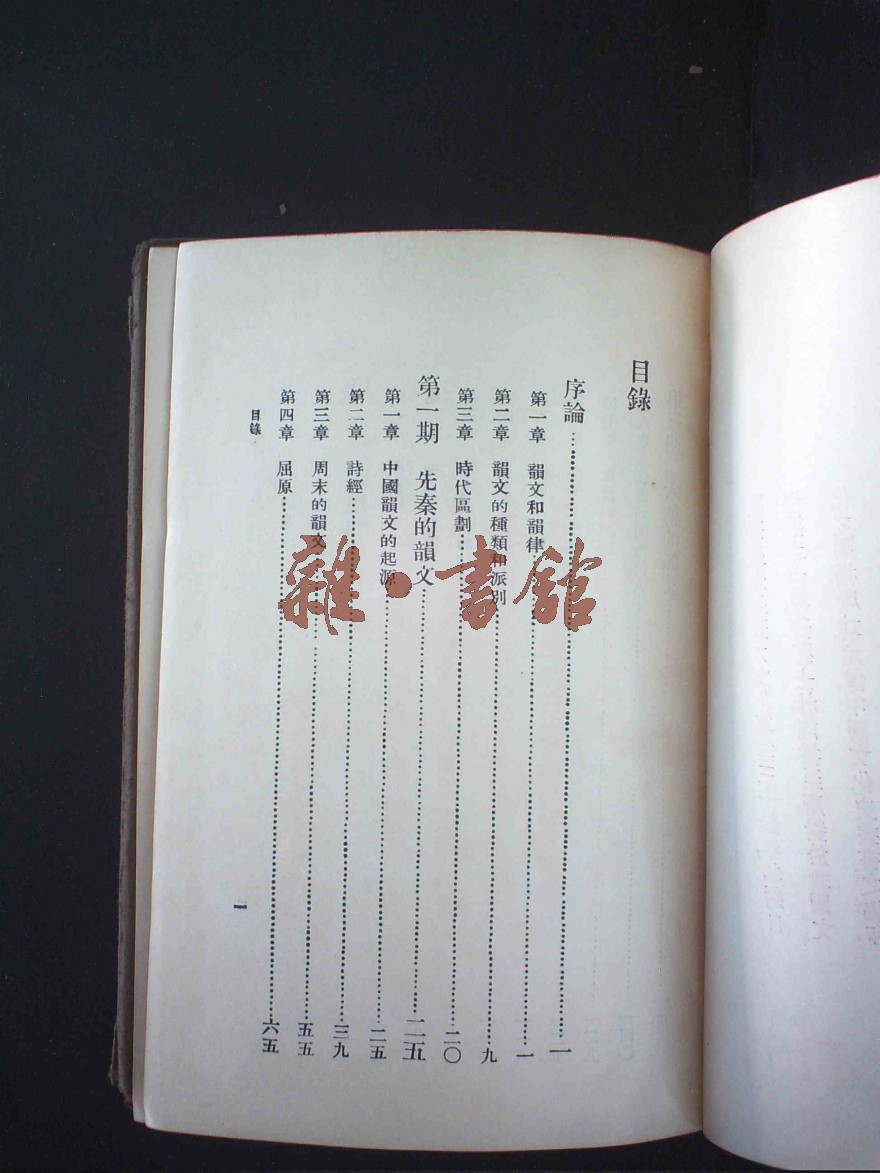 目錄
序論……一
第一章 韻文和韻律……一
第二章 韻文的種類和派別……九
第三章 時代區劃……二〇
第一期 先秦的韻文……二五
第一章 中國韻文的起源……二五
第二章 詩經……三九
第三章 周末的韻文……五五
第四章 屈原……六五
目錄
一
雜·書館